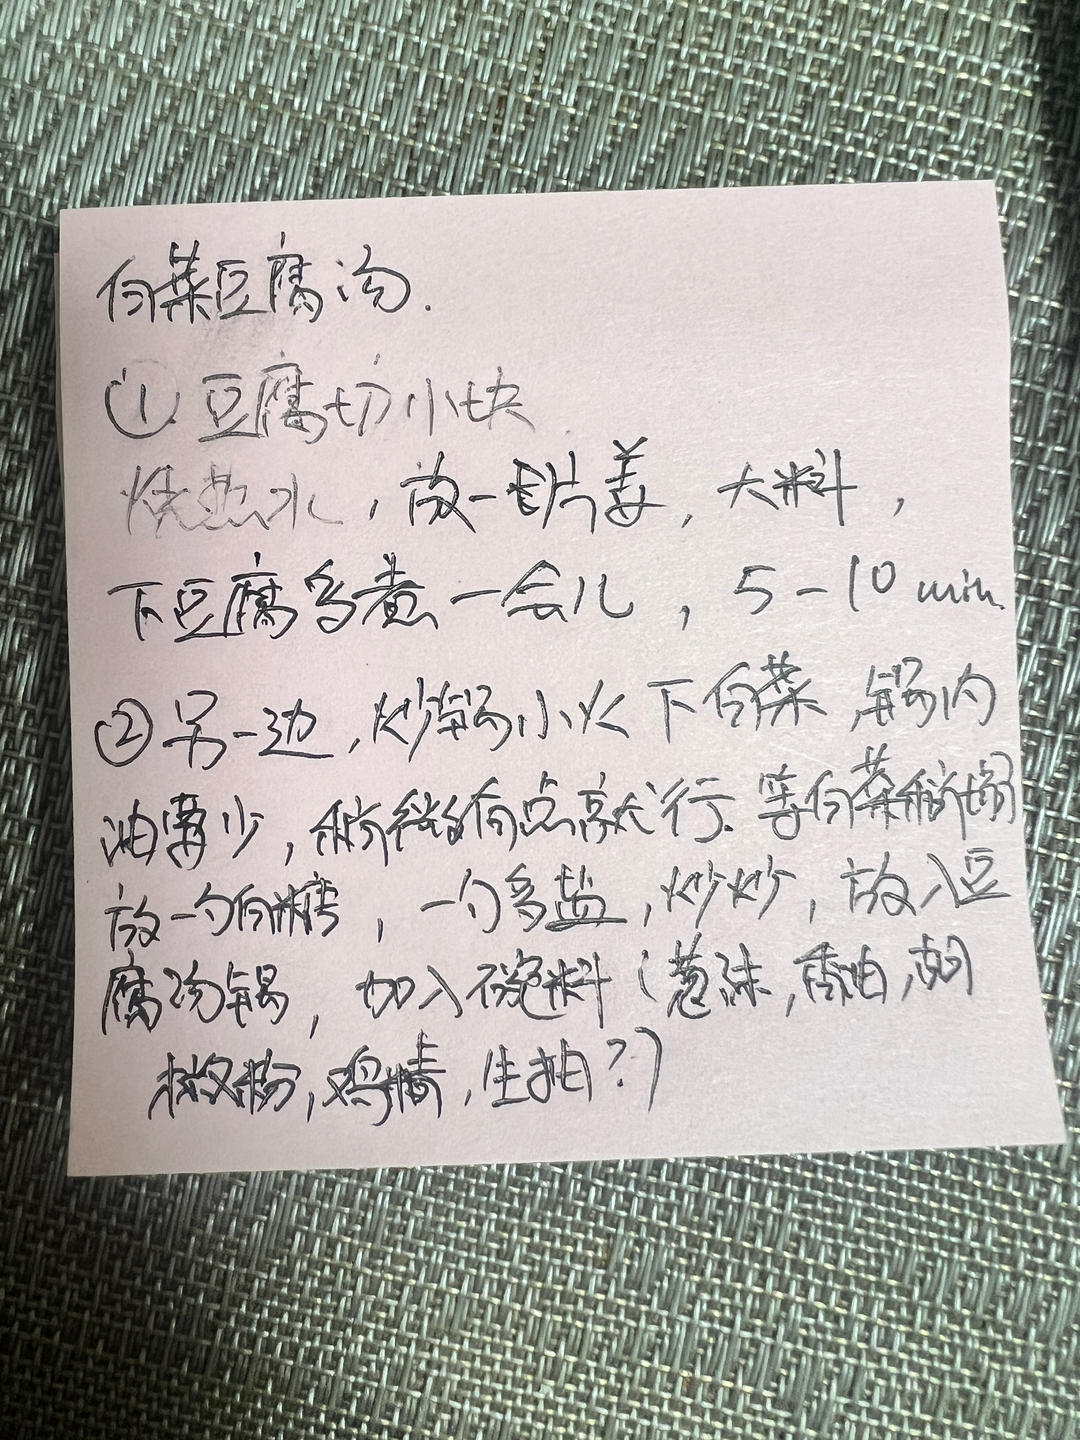 白菜豆腐汤.
① 豆腐切小块
烧热水,放一片姜,大料,
下豆腐多煮一会儿,5-10 min.
② 另一边,炒锅小火下白菜,锅内
油要少,稍微有点就行.等白菜稍塌
放一勺白糖,一勺多盐,炒炒,放入豆
腐汤锅,加入碗料(葱沫,香油,胡
椒粉,鸡精,生抽?)